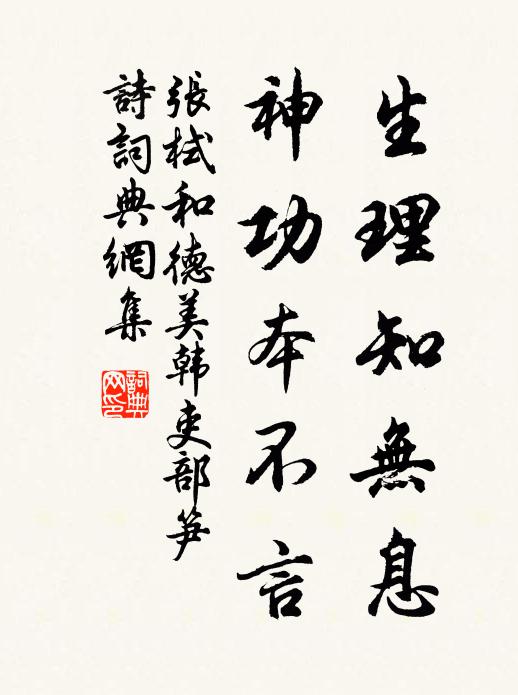 生理知無息
神功本不言
張栻和德美韓吏部笋
詩詞典網集
詞典網印